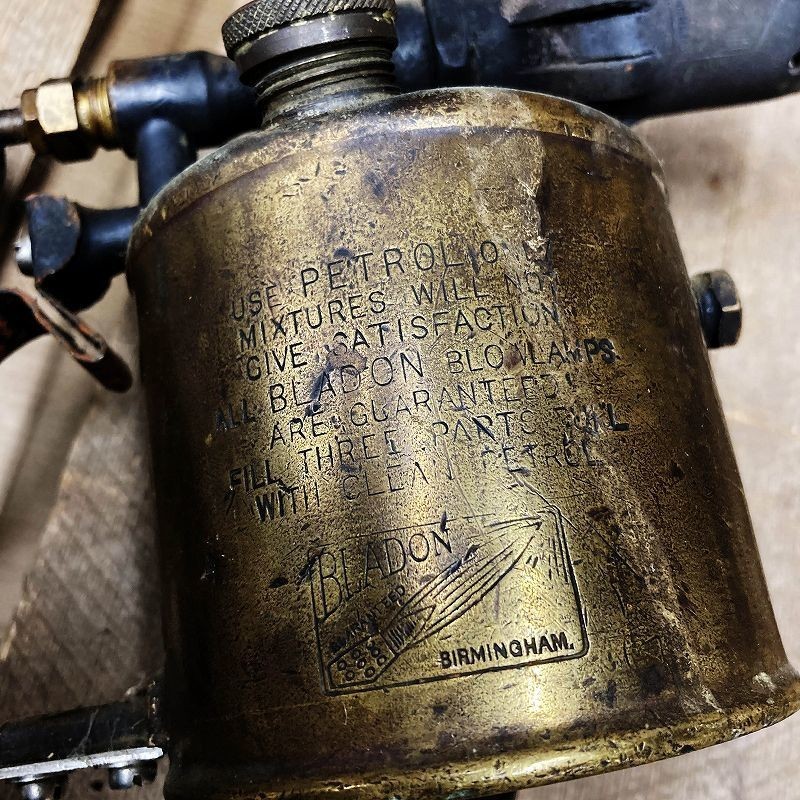 USE PETROL ONLY
MIXTURES WILL NOT
GIVE SATISFACTION
ALL BLADON BLOWLAMPS
ARE GUARANTEED
FILL THREE PARTS FULL
WITH CLEAN PETROL
BLADON
GUARANTEED
BIRMINGHAM.